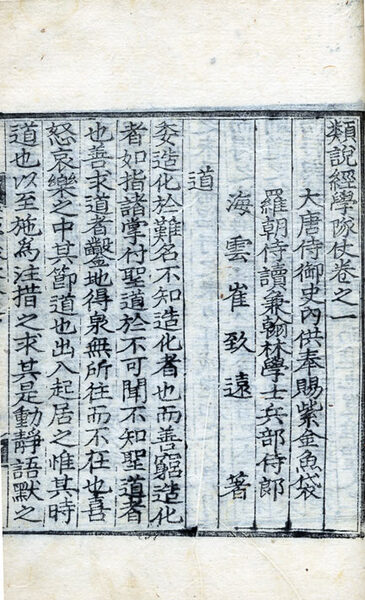 類說經學隊仗卷之一
大唐侍御史內供奉賜紫金魚袋
羅朝侍讀兼翰林學士兵部侍郎
海雲崔致遠 著
道
委造化於難名不知造化者也而善窮造化
者如指諸掌付聖道於不可聞不知聖道者
也善求道者鑿地得泉無所往而不在也喜
怒哀樂之中其節道也出入起居之惟其時
道也以至施爲注措之求其是動靜語默之